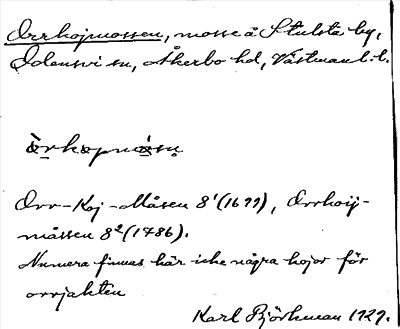 Orrkojmossen, mosse å Stulsta by,
Odensvi sn, Åkerbo hd, Västmanl. l.
Orr-Koj-Måsen 8¹ (1699), Orrkoij-
måssen 8² (1786).
Numera finnas här icke några kojor för
orrjakten
Karl Björkman 1929.